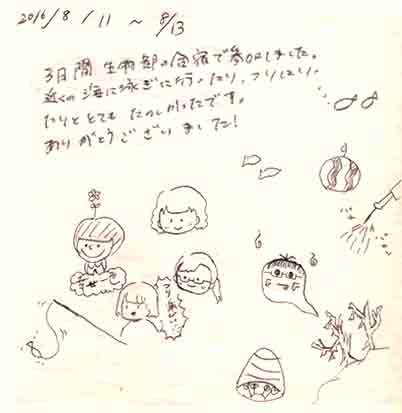 2016/8/11 ~ 8/13
3日間 生物部の合宿で参加しました。
近くの海に泳ぎに行ったり、つりしに
たりととても たのしかったです。
ありがとうございました!
せ